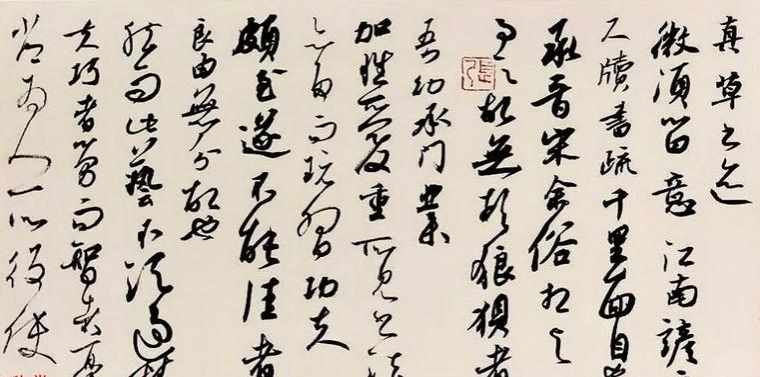 真草書迹
微須留意江南諺
尺牘書疏千里面目
承晉宋餘俗相與
事之故無頓狼狽者
吾幼承門業
加性愛重所見法
亦多而玩習功夫
頗至遂不能佳者
良由無分故也
然而此藝不須過
夫巧者勞而智者憂
常為人所役使
張